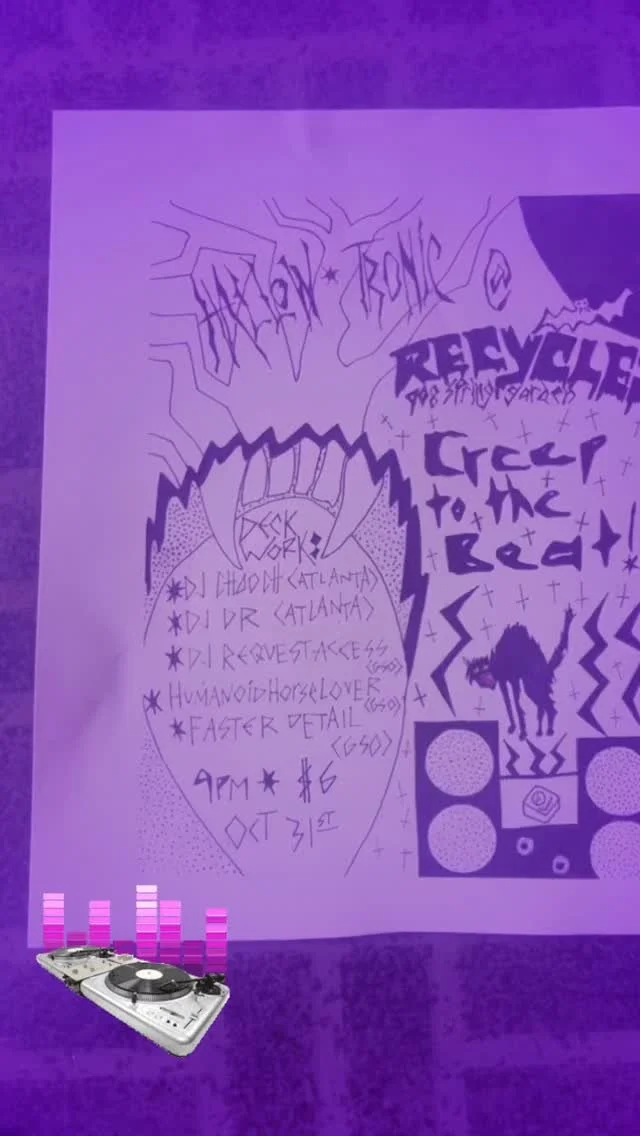 HALLOW * TRONIC @
RECYCLES
908 spring garden
Creep
to the
Beat!
DECK
WORK:
*DJ CHOOCH (ATLANTA)
*DJ DR (ATLANTA)
*DJ REQUEST ACCESS
(GSO)
*HUMANOIDHORSELOVER
(GSO)
*FASTER DETAIL
(GSO)
9PM * $6
OCT 31ST